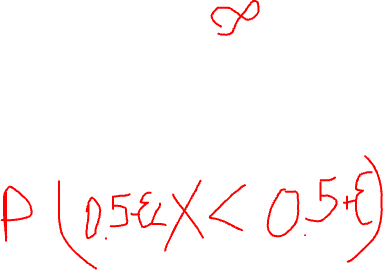 ∞
P(0.5-ε<X<0.5+ε)